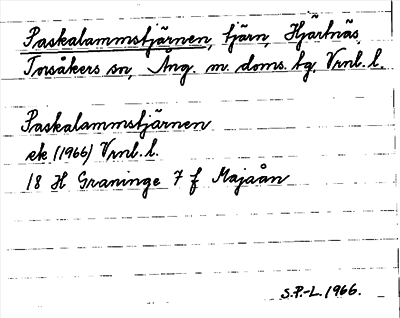 Paskalammstjärnen, tjärn, Hjärtnäs,
Torsåkers sn, Ång. m. doms. tg, Vrnl. l.
Paskalammstjärnen
ek (1966) Vrnl. l.
18 H Graninge 7 f Majaån
S.P.-L. 1966.